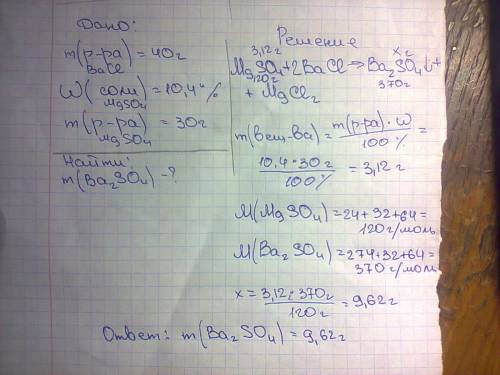 Дано:
m(р-ра) = 40г
BaCl
ω(соли) = 10,4%
MgSO4
m(р-ра) = 30г
MgSO4
Найти:
m(Ba2SO4) -?
Решение
3,12г xг
MgSO4+2BaCl ⇒ Ba2SO4↓+
120г 370г
+ MgCl2
m(вещ-ва) = m(р-ра) · ω / 100% =
10,4·30г / 100% = 3,12г
M(MgSO4)=24+32+64=
120г/моль
M(Ba2SO4)=274+32+64=
370г/моль
x = 3,12г·370г / 120г = 9,62г
Ответ: m(Ba2SO4)=9,62г